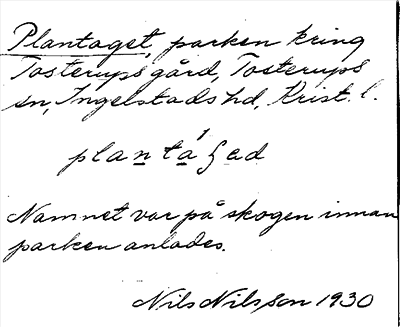 Plantaget, parken kring
Tosterups gård, Tosterups
sn, Ingelstads hd, Krist. l.
plantáʒad
Namnet var på skogen innan
parken anlades.
Nils Nilsson 1930